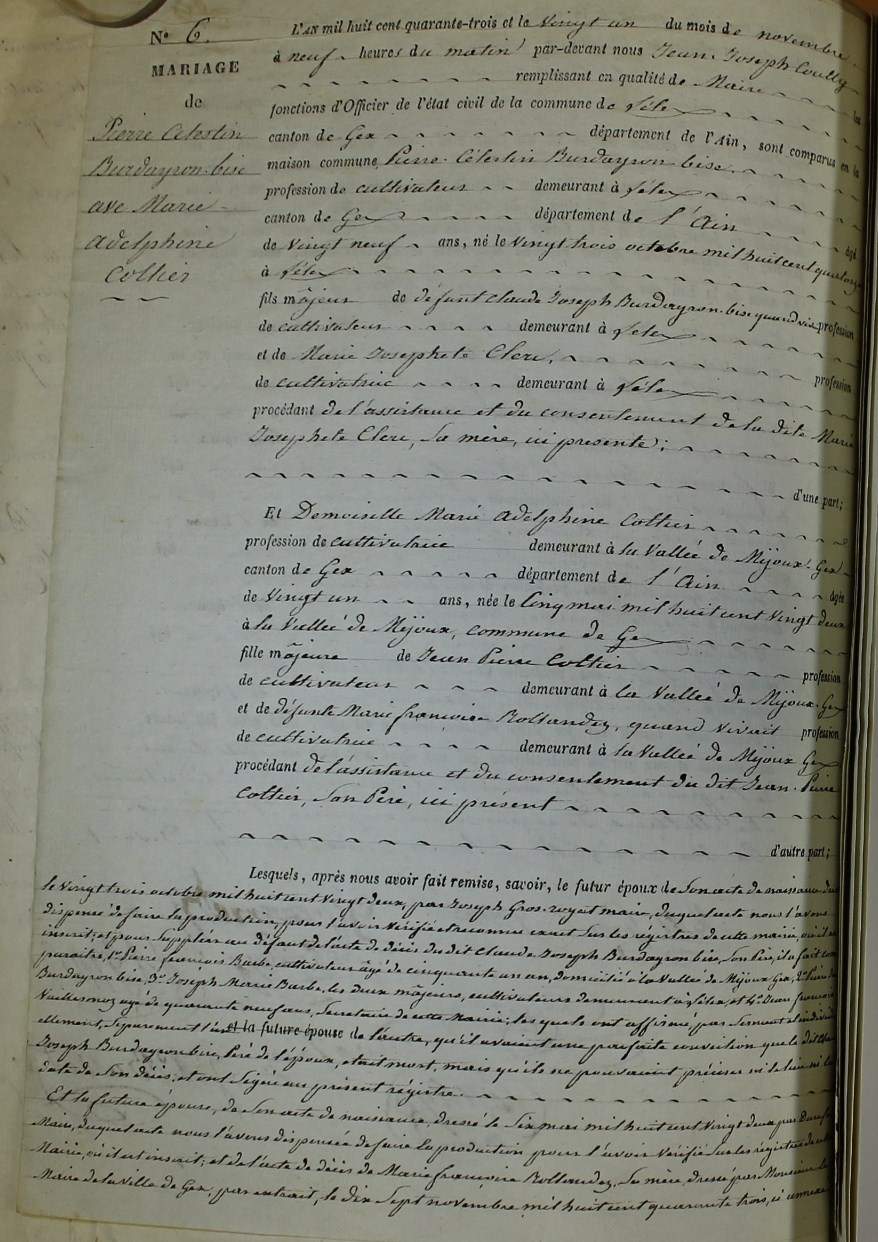 N° 6.
MARIAGE
de
Pierre Célestin
Burdayron-bise
ave Marie
adelphine
Cottier
L'AN mil huit cent quarante-trois et le Vingt un du mois de novembre
à neuf heures du matin par-devant nous Jean Joseph Coutty
remplissant en qualité de Maire les
fonctions d'Officier de l'état civil de la commune de Lélex
canton de Gex département de l'Ain, sont comparus en la
maison commune, Pierre Célestin Burdayron bise.
profession de cultivateur demeurant à Lélex
canton de Gex département de l'Ain âgé
de Vingt neuf ans, né le Vingt trois octobre mil huit cent quatorze
à Lélex
fils majeur de défunt Claude Joseph Burdayron-bise quand viv. profession
de cultivateur demeurant à Lélex
et de Marie Josephete Clerc, profession
de cultivatrice demeurant à Lélex
procédant de l'assistance et du consentement de la dite Marie
Josephete Clerc, sa mère, ici presente;
d'une part;
Et Demoiselle Marie adelphine Cottier
profession de cultivatrice demeurant à la Vallée de Mijoux-Gex
canton de Gex département de l'Ain âgée
de Vingt un ans, née le Cinq mai mil huit cent Vingt deux
à la Vallée de Mijoux, commune de Gex
fille majeure de Jean Pierre Cottier profession
de cultivateur demeurant à la Vallée de Mijoux-Gex
et de défunte Marie françoise Rollandez, quand vivait profession
de cultivatrice demeurant à la Vallée de Mijoux Gex
procédant de l'assistance et du consentement du dit Jean-Pierre
Cottier, son Père, ici présent
d'autre part;
Lesquels, après nous avoir fait remise, savoir, le futur époux de son acte de naissance du
le Vingt trois octobre mil huit cent Vingt deux, par Joseph Gros-royat maire, duquel acte nous l'avons
dispensé de faire la production, pour l'avoir Vérifié et reconnu exact sur les régistres de cette mairie, où il est
inscrit; et pour suppléer au défaut de l'acte de décès du dit Claude Joseph Burdayron bise, son Père, il a fait com
paraitre, 1° Pierre françois Barbe, cultivateur âgé de cinquante un an, domicilié à la Vallée de Mijoux Gex, 2° Pierre
Burdayron bise, 3° Joseph Marie Barbe, les deux majeurs, cultivateurs demeurant à Lélex, et 4° Jean françois
agé de quarante neuf ans, Secretaire de cette Mairie; les quels ont affirmé par serment et individu
ellement, séparement l'un et la future épouse de l'autre, qu'il avaient une parfaite conviction que le dit Claude
Joseph Burdayron bise, Père de l'époux, etait mort, mais qu'ils ne pouvaient préciser ni le lieu ni la
date de son décès; et ont signé au présent régistre.
Et la future épouse, de son acte de naissance, dressé le Six mai mil huit cent Vingt deux par
Maire, duquel acte nous l'avons dispensée de faire la production pour l'avoir Vérifié sur les régistres de cette
Mairie, où il est inscrit; et de l'acte de décès de Marie françoise Rollandez, sa mère, dressé par Monsieur le
Maire de la Ville de Gex, par extrait, le dix Sept novembre mil huit cent quarante trois, ci annexé